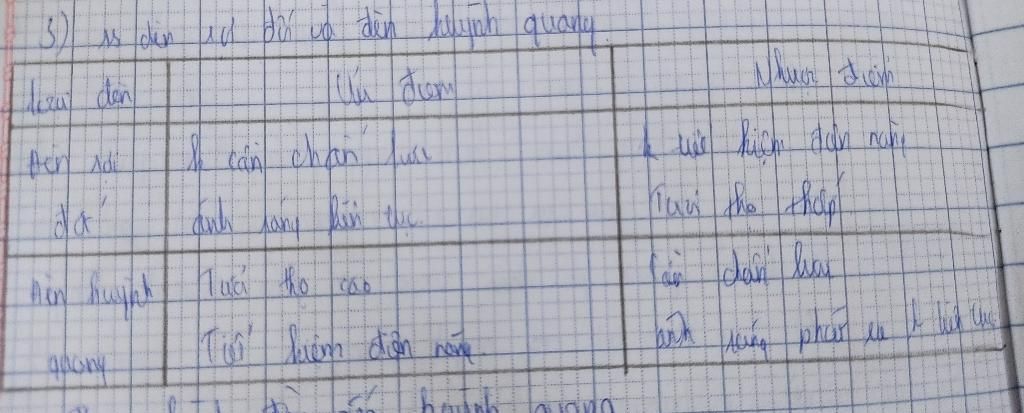 3) ss đèn sợi đốt và đèn huỳnh quang
Loại đèn Ưu điểm Nhược điểm
Đèn sợi K cần chấn lưu K tiết kiệm điện năng
đốt ánh sáng liên tục Tuổi thọ thấp
Đèn huỳnh Tuổi thọ cao Cần chấn lưu
quang Tiết kiệm điện năng ánh sáng phát ra k liên tục
huỳnh quang